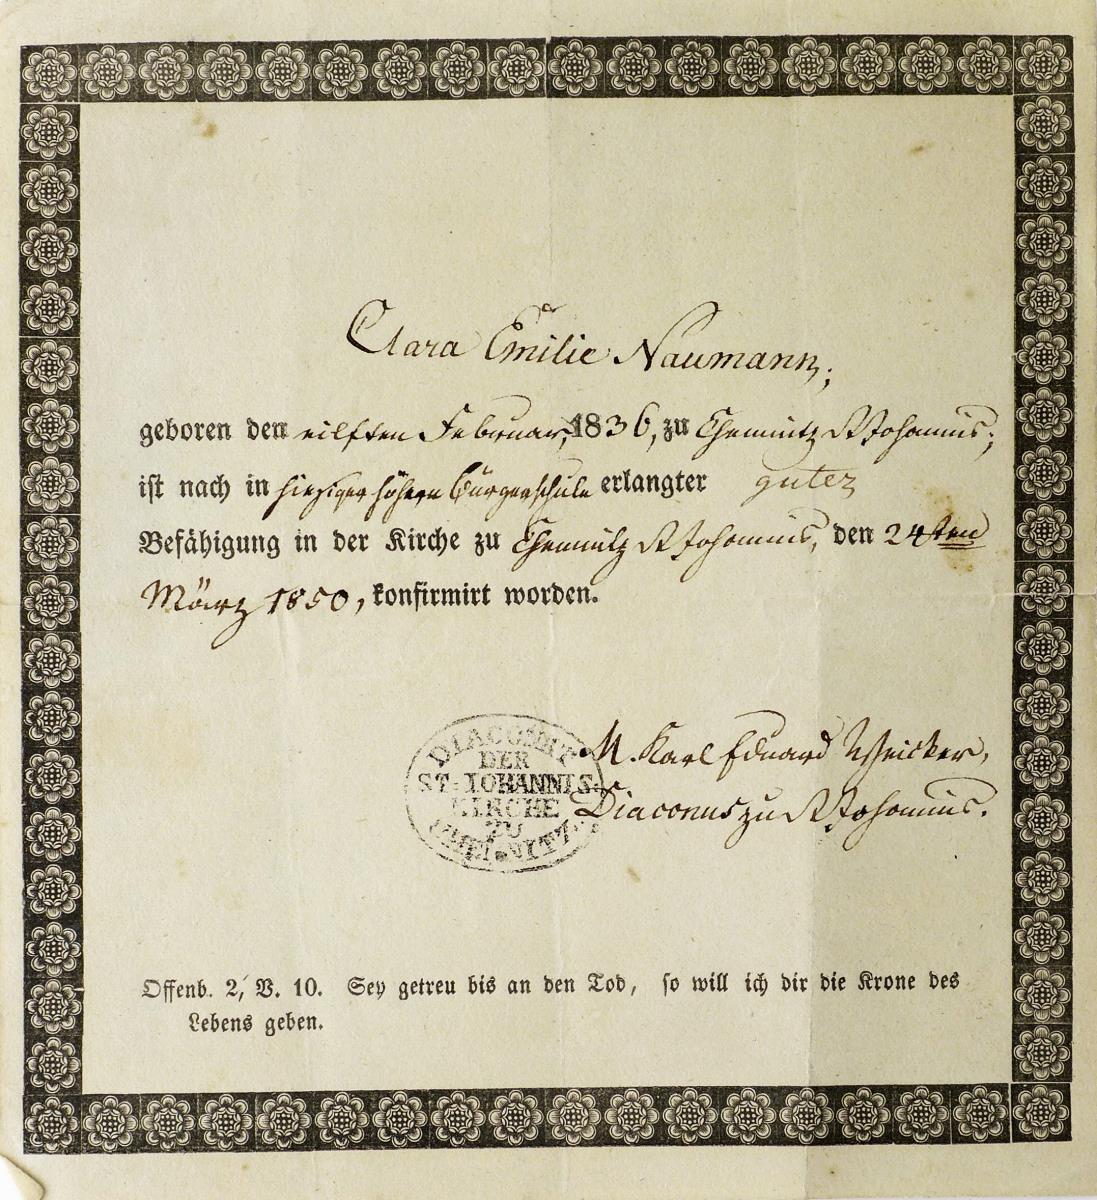 Clara Emilie Naumann,
geboren den eilften Februar, 1836, zu Chemnitz St Johannis,
ist nach in hiesiger höhern Bürgerschule erlangter guter
Befähigung in der Kirche zu Chemnitz St Johannis, den 24sten
März 1850, konfirmirt worden.
M. Karl Eduard
DIACONAT
DER
ST. IOHANNIS-
KIRCHE
ZU
CHEMNITZ
Diaconus zu St Johannis.
Offenb. 2, V. 10. Sey getreu bis an den Tod, so will ich dir die Krone des
Lebens geben.